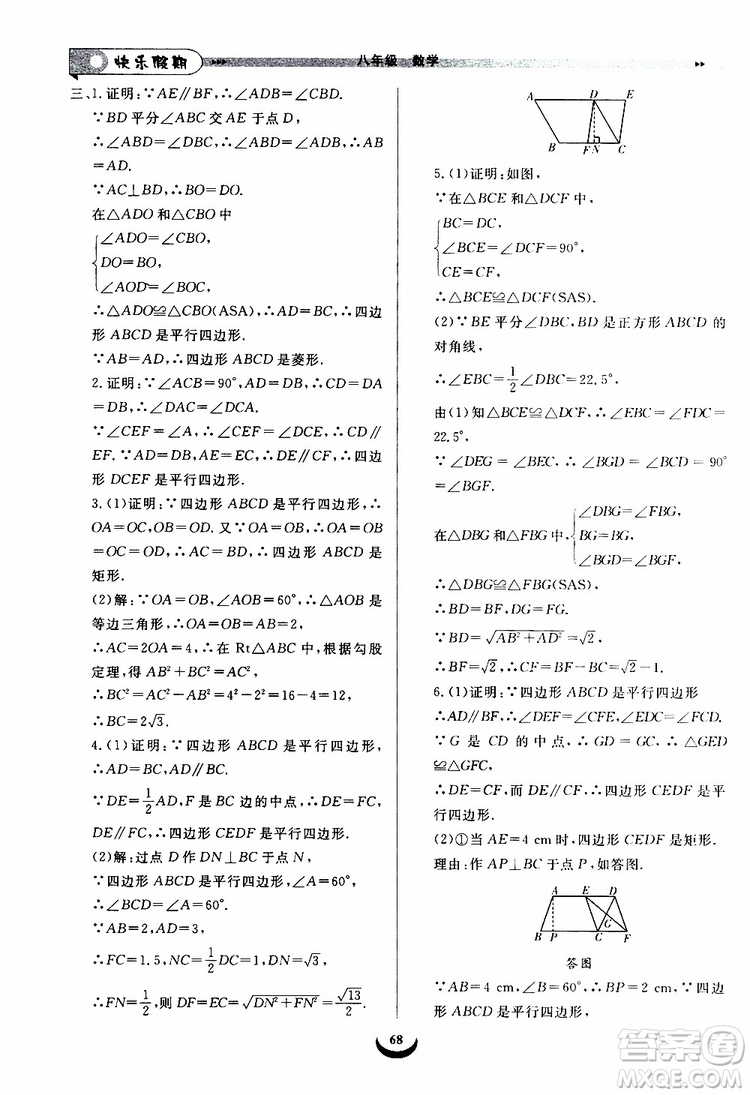 快乐假期
八年级 数学
三、1.证明：∵AE∥BF,∴∠ADB=∠CBD.
∵BD平分∠ABC交AE于点D,
∴∠ABD=∠CBD,∴∠ABD=∠ADB,∴AB
=AD.
∵AC⊥BD,∴BO=DO.
在△ADO和△CBO中
∠ADO=∠CBO,
DO=BO,
∠AOD=∠BOC,
∴△ADO≌△CBO(ASA),∴AD=CB,∴四边
形ABCD是平行四边形.
∵AB=AD,∴四边形ABCD是菱形.
2.证明：∵∠ACB=90°,AD=DB,∴CD=DA
=DB,∴∠DAC=∠DCA.
∵∠CEF=∠A,∴∠CEF=∠DCE,∴CD∥
EF.∵AD=DB,AE=EC,∴DE∥CF,∴四边
形DCEF是平行四边形.
3.(1)证明：∵四边形ABCD是平行四边形,∴
OA=OC,OB=OD.又∵OA=OB,∴OA=OC
=OB=OD,∴AC=BD,∴四边形ABCD是
矩形.
(2)解：∵OA=OB,∠AOB=60°,∴△AOB是
等边三角形,∴OA=OB=AB=2,
∴AC=2OA=4,∴在Rt△ABC中,根据勾股
定理,得AB²+BC²=AC²,
∴BC²=AC²-AB²=4²-2²=16-4=12,
∴BC=2√3.
4.(1)证明：∵四边形ABCD是平行四边形,
∴AD=BC,AD∥BC.
∵DE=1/2AD,F是BC边的中点,∴DE=FC,
DE∥FC,∴四边形CEDF是平行四边形.
(2)解：过点D作DN⊥BC于点N,
∵四边形ABCD是平行四边形,∠A=60°,
∴∠BCD=∠A=60°.
∵AB=2,AD=3,
∴FC=1.5,NC=1/2DC=1,DN=√3,
∴FN=1/2,则DF=EC=√(DN²+FN²)=√13/2.
A D E
B F N C
5.(1)证明：如图,
∵在△BCE和△DCF中,
BC=DC,
∠BCE=∠DCF=90°,
CE=CF,
∴△BCE≌△DCF(SAS).
(2)∵BE平分∠DBC,BD是正方形ABCD的
对角线,
∴∠EBC=1/2∠DBC=22.5°,
由(1)知△BCE≌△DCF,∴∠EBC=∠FDC=
22.5°,
∵∠DEG=∠BEC,∴∠BGD=∠BCD=90°
=∠BGF.
在△DBG和△FBG中,
∠DBG=∠FBG,
BG=BG,
∠BGD=∠BGF,
∴△DBG≌△FBG(SAS)
∴BD=BF,DG=FG.
∵BD=√(AB²+AD²)=√2,
∴BF=√2,∴CF=BF-BC=√2-1.
6.(1)证明：∵四边形ABCD是平行四边形
∴AD∥BF,∴∠DEF=∠CFE,∠EDC=∠FCD.
∵G是CD的中点,∴GD=GC,∴△GED
≌△GFC.
∴DE=CF,而DE∥CF,∴四边形CEDF是平
行四边形.
(2)①当AE=4 cm时,四边形CEDF是矩形.
理由：作AP⊥BC于点P,如答图.
A E D
G
B P C F
答图
∵AB=4 cm,∠B=60°,∴BP=2 cm,四边
形ABCD是平行四边形,
68
答案圈
MXQE.COM